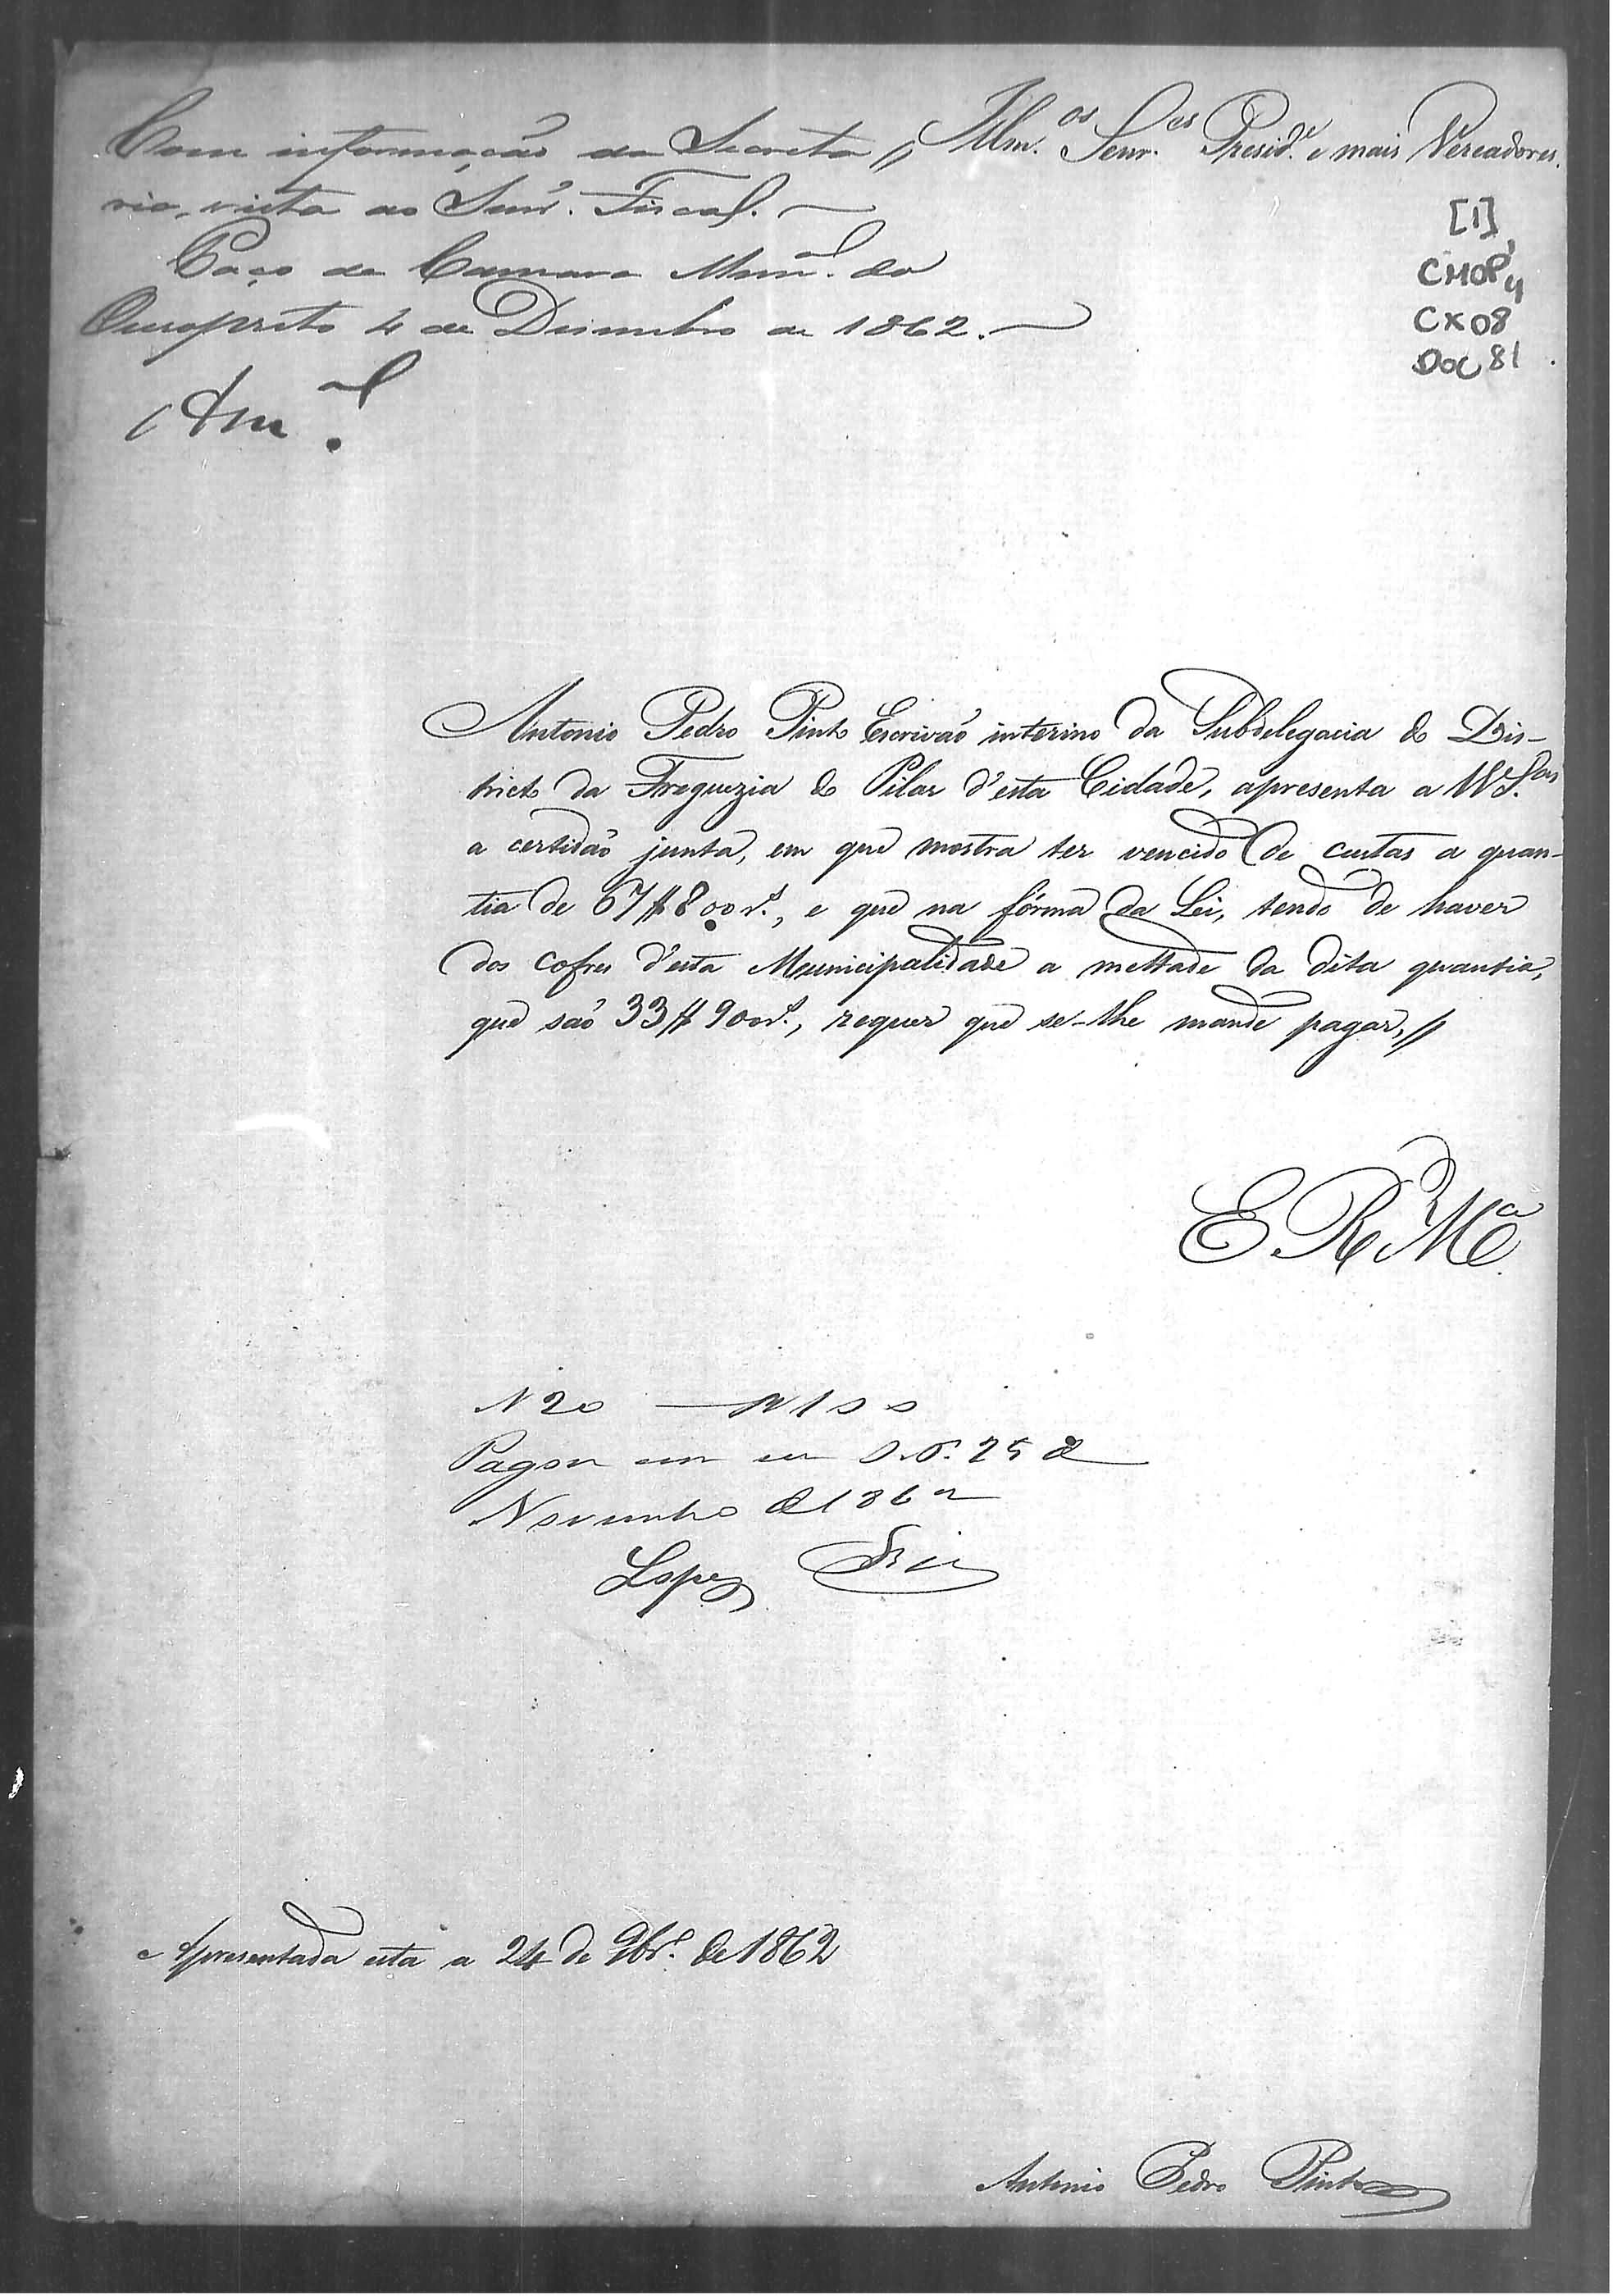 Illm.os Senr.es Presid.e e mais Vereadores.
Com informação do Secreta
rio, vista ao Snr. Fiscal.
Paço da Camara Mun.al do
Ouropreto 4 de Desembro de 1862.
[1]
CMOP
CX 08
DOC 81
Antonio Pedro Pinto Escrivão interino da Subdelegacia do Dis-
tricto da Freguezia do Pilar d'esta Cidade, apresenta a VV.
a certidão junta, em que mostra ter vencido de custas a quan-
tia de 67$800 r.s, e que na fórma da Lei, tendo de haver
dos cofres d'esta Municipalidade a mettade da dita quantia,
que são 33$900 r.s, requer que se-lhe mande pagar,
E R M.ce
N 20 — 100
Pagou
Novembro de 186
Lopes
Apresentada esta a 24 de 9br.o de 1862
Antonio Pedro Pinto